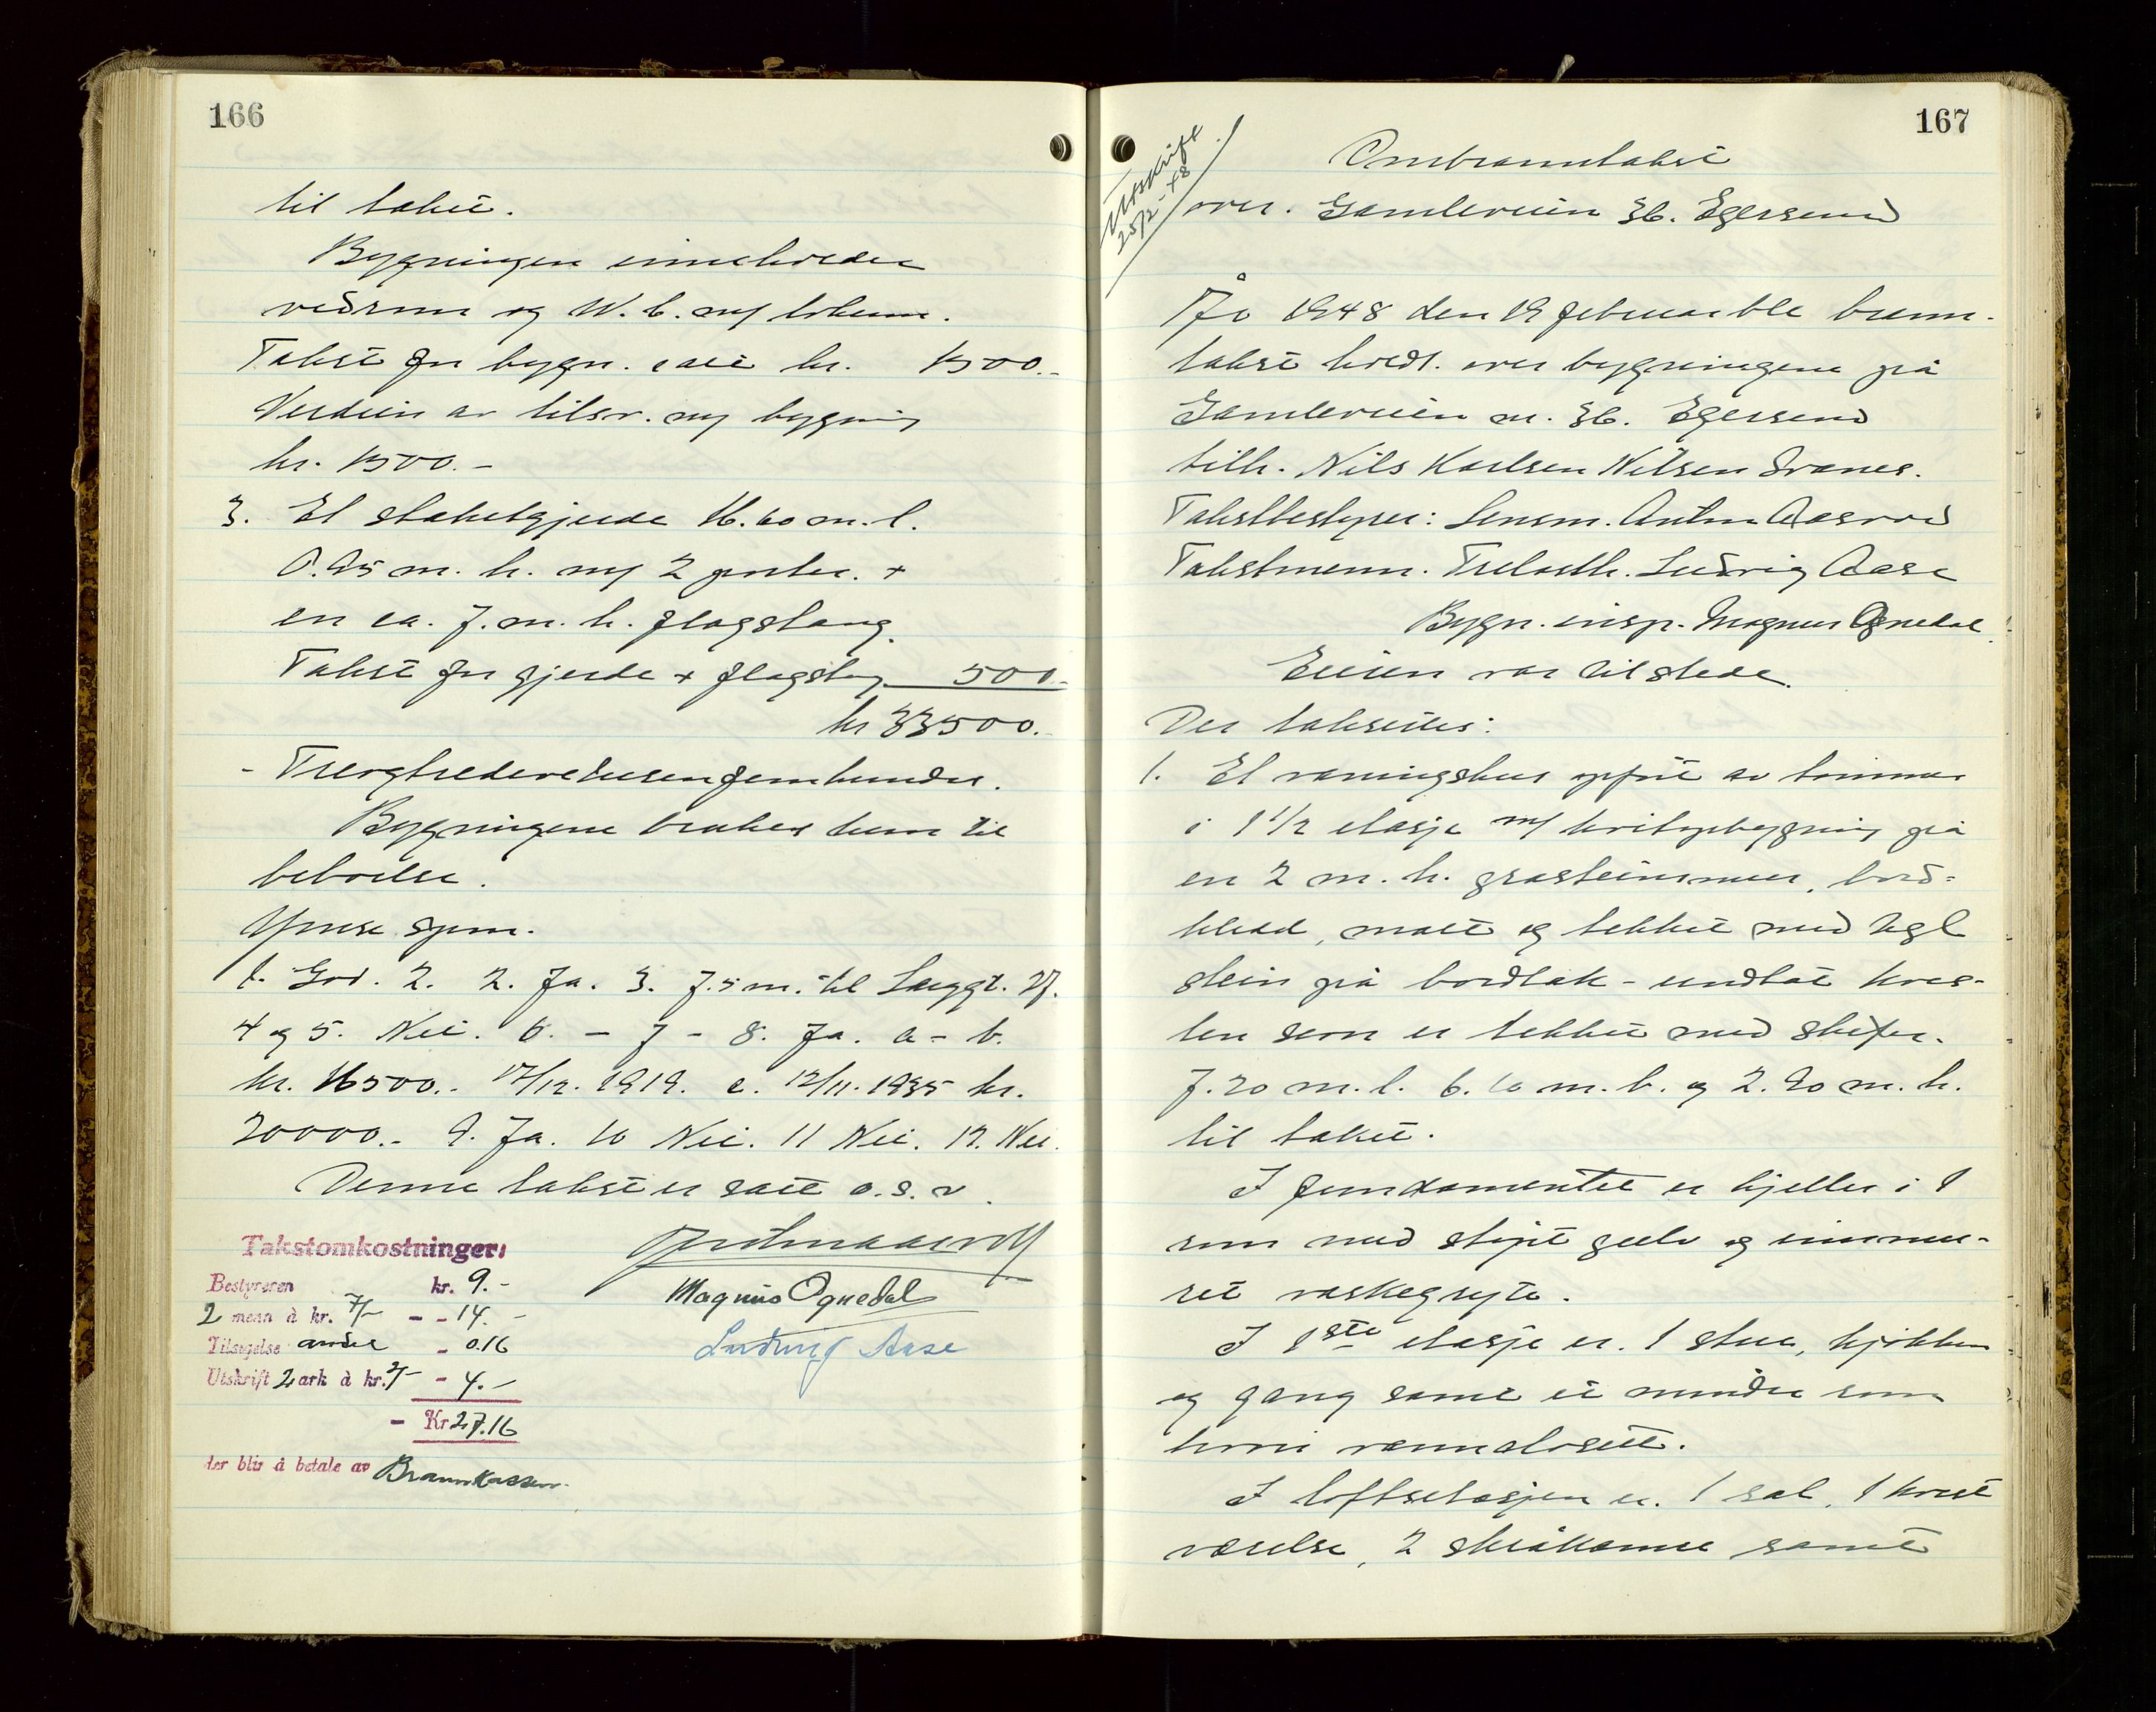 166
til taket.
Bygningen inneholder
vedrum og W. C. m/ lokum.
Takst for bygn. satt kr. 1500.-
Verdien av tilsv. ny bygning
kr. 1500.-
3. Et stakitgjerde 16.60 m. l.
0.95 m. h. m/ 2 porter. +
en ca. 7. m. h. flagstang.
Takst for gjerde + flagstag 500.-
kr 33500.-
- Trergtredevetusenfemhundre.
Bygningene brukes kun til
beboelse.
Gjense spm.
1. God. 2. 2. Ja. 3. 7.5 m. til Lauggt. 27.
4 og 5. Nei. 6. - 7 - 8. Ja. a - b.
kr. 16500.- 17/12. 1919. c. 12/11. 1935 kr.
20000.- 9. Ja. 10 Nei. 11 Nei. 12. Nei.
Denne takst er satt o. s. v.
Takstomkostninger:
Bestyreren kr. 9.-
2 menn à kr. 7/- - - 14.-
Tilsigelse andel - 0.16
Utskrift 2 ark à kr. 2/- - 4.-
- Kr 27.16
der blir å betale av Brannkassen.
Magnus Ognedal
Ludvig Aase
167
Utskrift
25/2-48
Ombranntakst
over. Gamleveien 36. Egersund
År 1948 den 19 februar ble brann-
takst holdt. over bygningene på
Gamleveien nr. 36. Egersund
tilh. Nils Karlsen Nilsen Svanes.
Takstbestyrer: Lensm. Anton Aasrod
Takstmenn. Trelasth. Ludvig Aase
Bygn. insp. Magnus Ognedal.
Eieren var tilstede.
Der takseres:
1. Et våningshus oppført av tømmer
i 1 1/2 etasje m/ kvistpåbygning på
en 2 m. h. gråsteinsmur, bord-
kledd, malt og tekket med tegl
stein på bordtak - undtatt kvis-
ten som er tekket med skifer.
7.20 m. l. 6.60 m. b. og 2.90 m. h.
til taket.
I fundamentet er kjeller i 1
rum med støpt gulv og innmu-
ret vaskegryte.
I 1ste etasje er. 1 stue, kjøkken
og gang samt et mindre rom
hvori vannclosett.
I loftsetasjen er. 1 sal. 1 kvist
værelse, 2 skråkammer samt